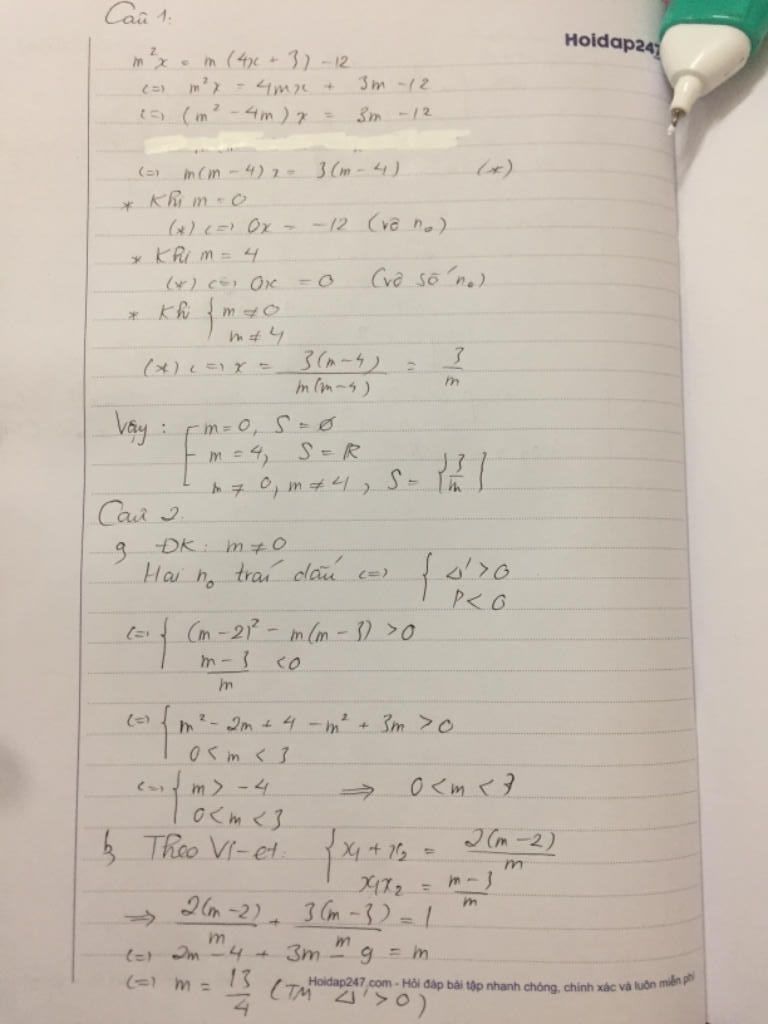 Câu 1:
Hoidap247
m²x = m(4x + 3) - 12
<=> m²x = 4mx + 3m - 12
<=> (m² - 4m)x = 3m - 12
<=> m(m - 4)x = 3(m - 4) (*)
* Khi m = 0
(*) <=> 0x = -12 (vô n₀)
* Khi m = 4
(*) <=> 0x = 0 (vô số n₀)
* Khi { m ≠ 0
m ≠ 4
(*) <=> x = 3(m-4)/m(m-4) = 3/m
Vậy: [ m = 0, S = ∅
m = 4, S = R
m ≠ 0, m ≠ 4, S = {3/m}
Câu 2.
a, ĐK: m ≠ 0
Hai n₀ trái dấu <=> { Δ' > 0
P < 0
<=> { (m - 2)² - m(m - 3) > 0
(m - 3)/m < 0
<=> { m² - 2m + 4 - m² + 3m > 0
0 < m < 3
<=> { m > -4 => 0 < m < 3
0 < m < 3
b, Theo Vi-et: { x₁ + x₂ = 2(m-2)/m
x₁x₂ = (m-3)/m
=> 2(m-2)/m + 3(m-3)/m = 1
<=> 2m - 4 + 3m - 9 = m
<=> m = 13/4 (TM Δ' > 0)
Hoidap247.com - Hỏi đáp bài tập nhanh chóng, chính xác và luôn miễn phí